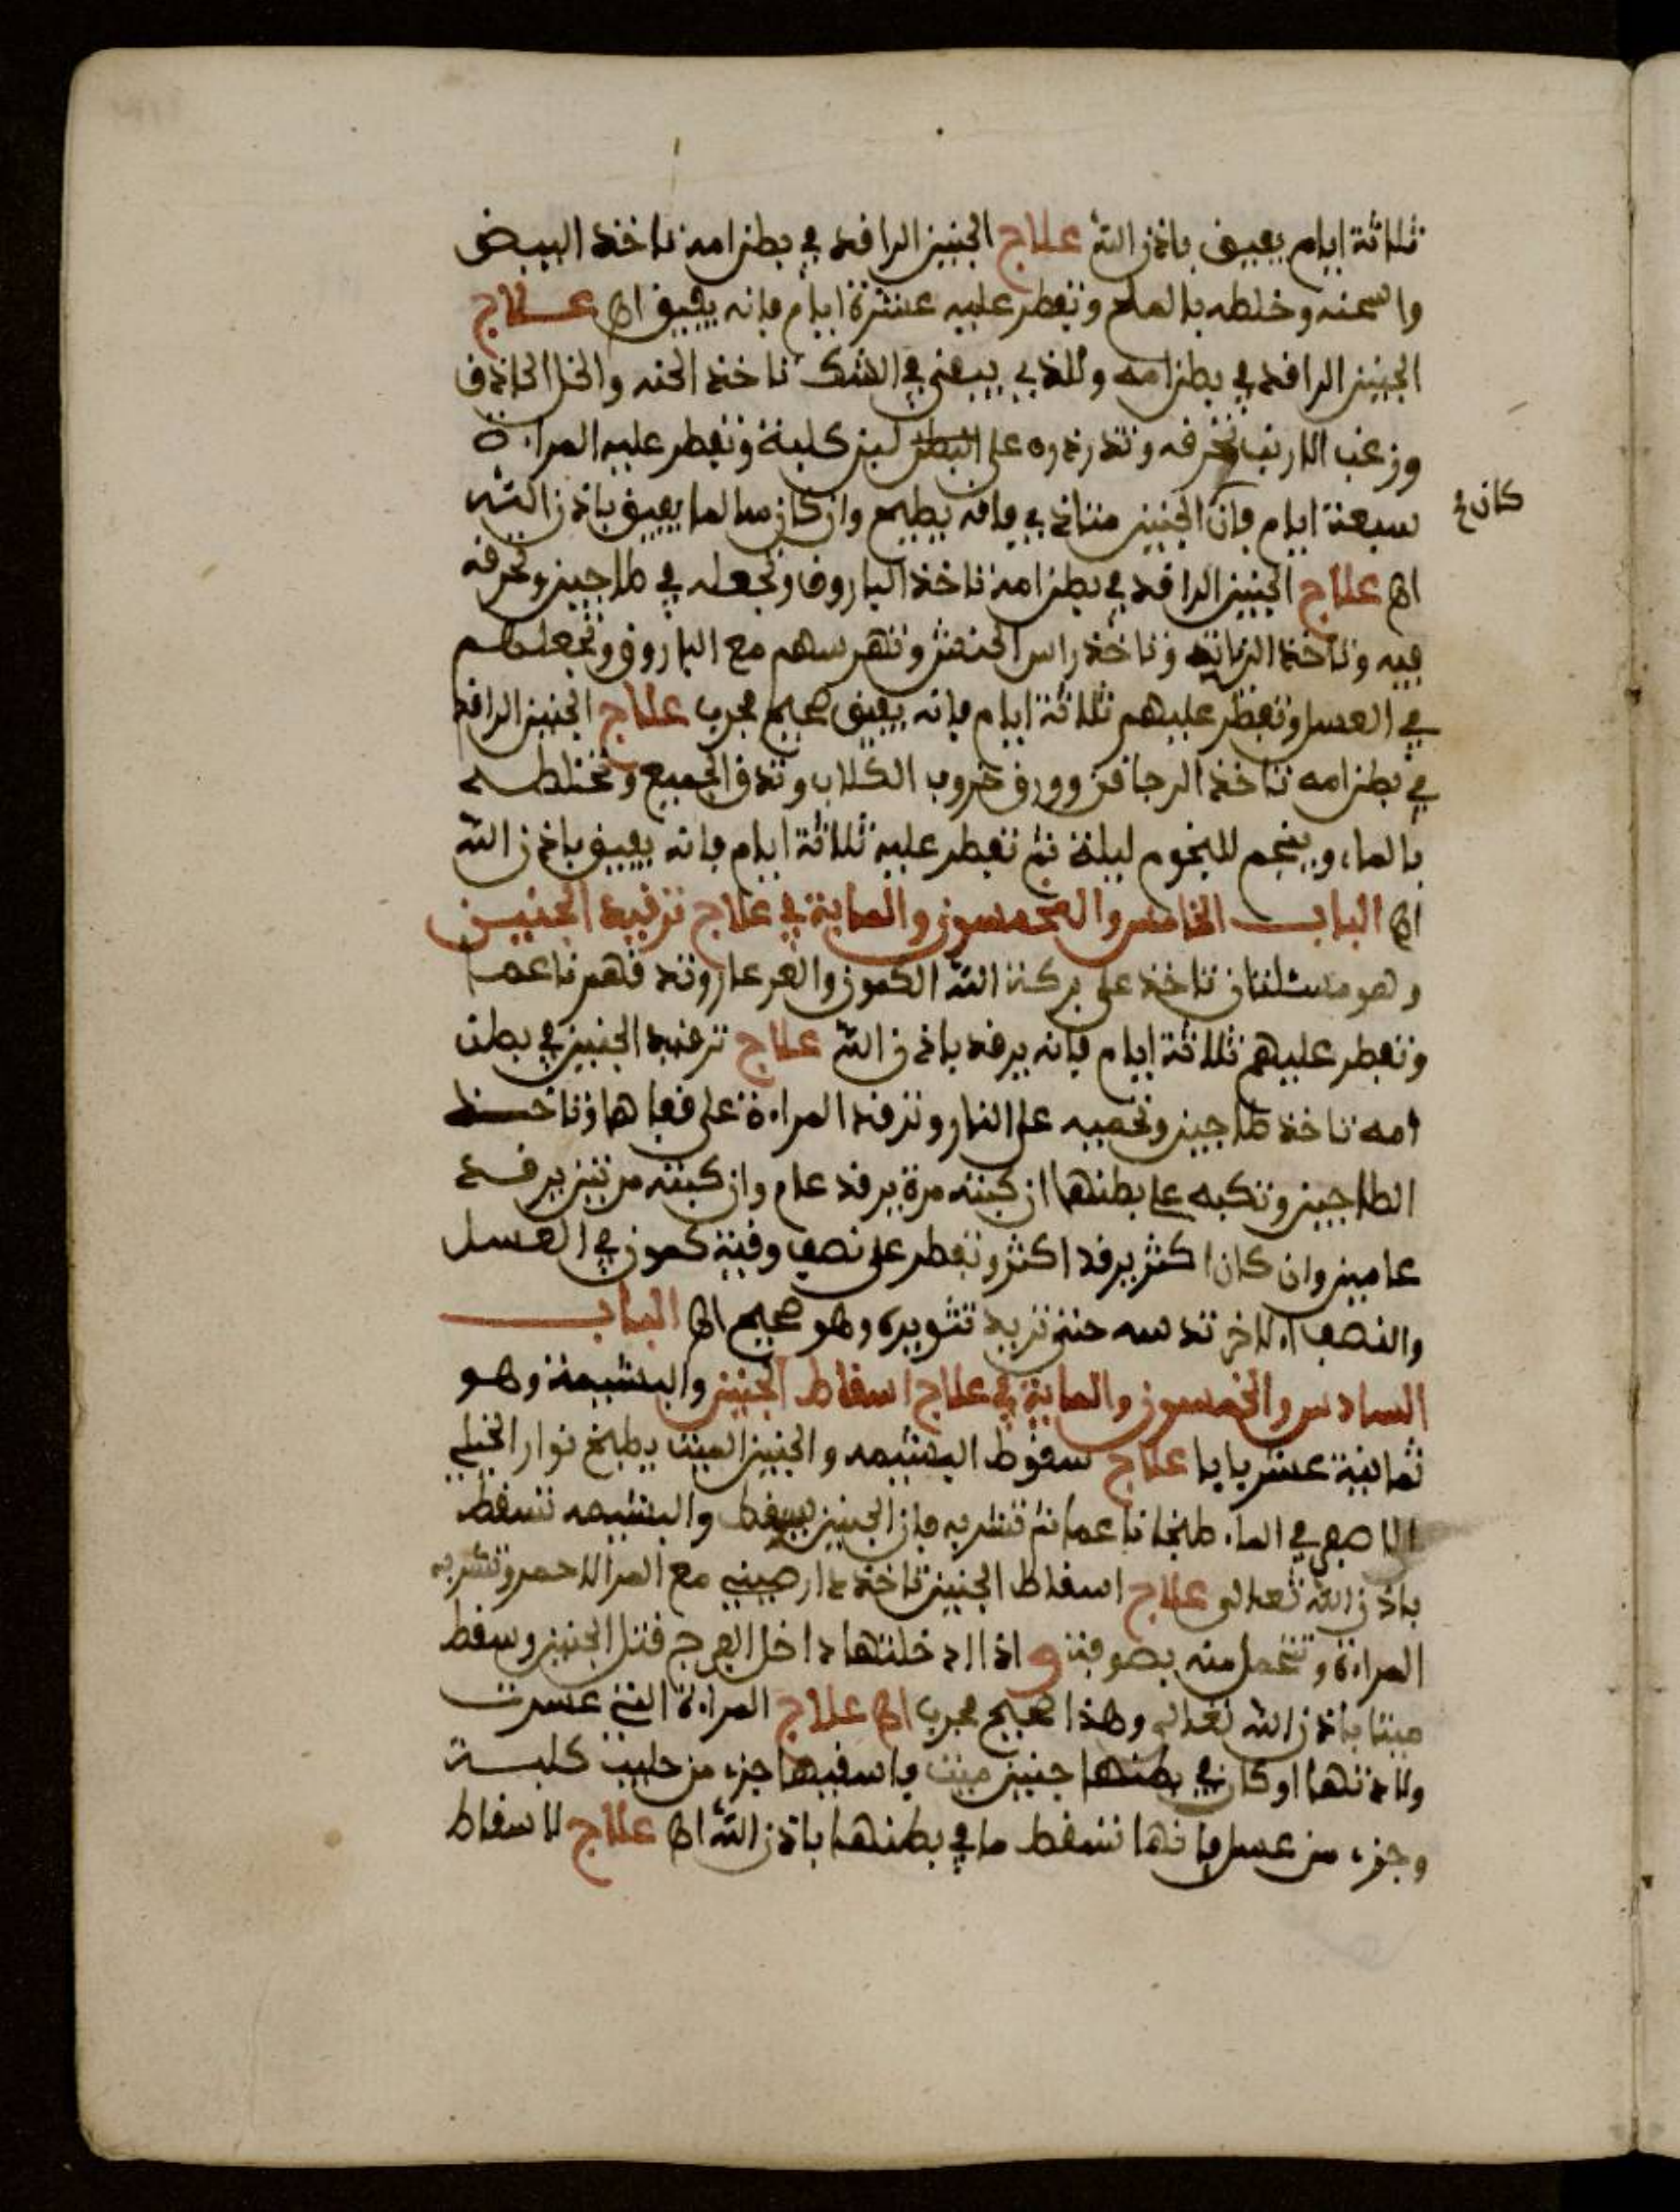 ثلاثة ايام يفيق باذن الله علاج الجنين الراقد في بطن امه تاخذ البيض
واسمنه وخلطه بالملح وتفطر عليه عشرة ايام فانه يفيق اه علاج
الجنين الراقد في بطن امه وللذي يبقى في الشك تاخذ الحنه والخل الحاذق
وزغب الارنب تحرقه وتذرذره على لبن كلبة وتفطر عليه المراءة
سبعة ايام فان الجنين متاذي فانه يطيح وان كان سالما يفيق باذن الله
كان
اه علاج الجنين الراقد في بطن امه تاخذ الباروق وتجعله في طاجين وتحرقه
فيه وتاخذ وتاخذ راس الحنش وتهرسهم مع الباروق وتجعلهم
في العسل وتفطر عليهم ثلاثة ايام فانه يفيق صحيح مجرب علاج الجنين الراقد
في بطن امه تاخذ الرجاقن وورق خروب الكلاب وتدق الجميع وتخلطه
بالماء وينجم للنجوم ليلة ثم تفطر عليه ثلاثة ايام فانه يفيق باذن الله
اه الباب الخامس والخمسون والماية في علاج ترقيد الجنين
وهو مسئلتان تاخذ على بركة الله الكمون والعرعار وتدقهم ناعما
وتفطر عليهم ثلاثة ايام فانه يرقد باذن الله علاج ترقيد الجنين في بطن
امه تاخذ طاجين وتحميه على النار وترقد المراءة على قفاها وتاخذ
الطاجين وتكبه على بطنها ان كبته مرة يرقد عام وان كبته مرتين يرقد
عامين وان كان اكثر يرقد اكثر وتفطر على نصف وقية كمون في العسل
والنصف الاخر تدسه حتى تريد تثويره وهو صحيح اه الباب
السادس والخمسون والماية في علاج اسقاط الجنين والبشيمة وهو
ثمانية عشر بابا علاج سقوط البشيمه والجنين الميت يطبخ نوار الخيلي
الاصفر في الماء طبخا ناعما ثم تشربه فان الجنين يسقط والبشيمه تسقط
باذن الله تعالى علاج اسقاط الجنين تاخذ دارصيني مع المر الاحمر وتشربه
المراءة وتتحمل منه بصوفة و اذا ادخلتها داخل الفرج قتل الجنين وسقط
ميتا باذن الله تعالى وهذا صحيح مجرب اه علاج المراءة التي عسرت
ولادتها او كان في بطنها جنين ميت فاسقيها جزء من حليب كلبة
وجزء من عسل فانها تسقط ما في بطنها باذن الله اه علاج لاسقاط